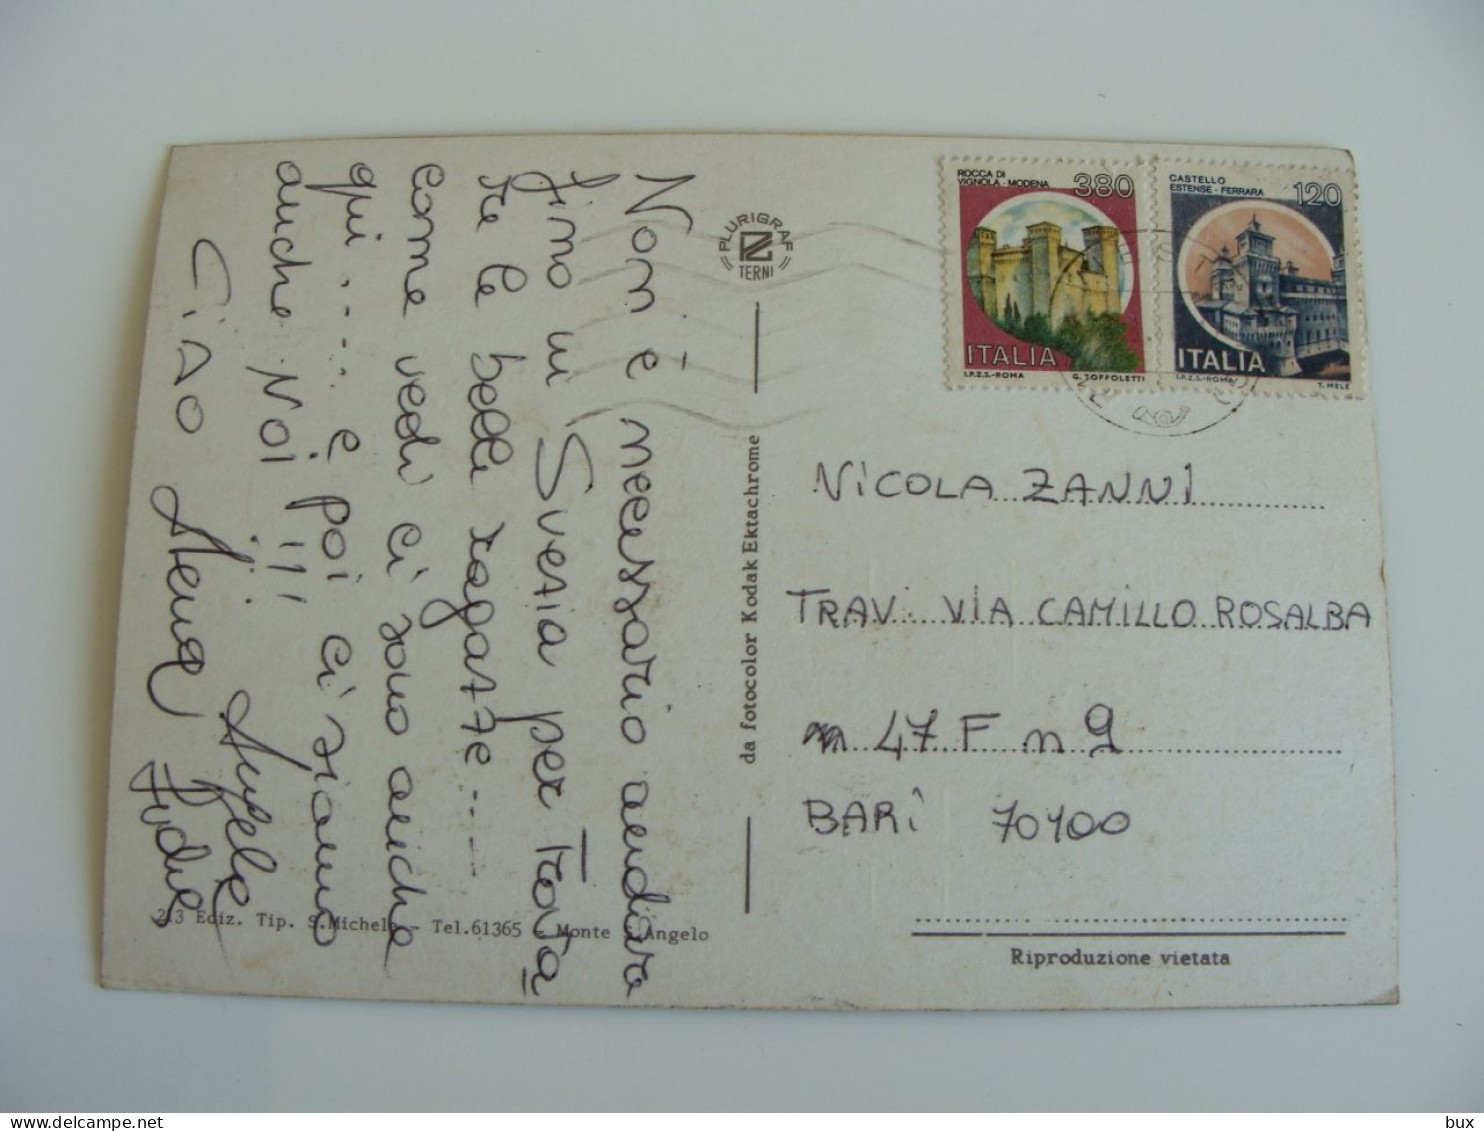 Non è necessario andare
fino in Svezia per trova
re le belle ragazze.....
come vedi ci sono anche
qui..... e poi ci siamo
anche NOI !!!
CIAO
PLURIGRAF
TERNI
da fotocolor Kodak Ektachrome
213 Ediz. Tip. S. Michele - Tel.61365 - Monte S. Angelo
ROCCA DI
VIGNOLA - MODENA
380
ITALIA
I.P.Z.S.-ROMA G. TOFFOLETTI
CASTELLO
ESTENSE - FERRARA
120
ITALIA
I.P.Z.S.-ROMA T. MELE
NICOLA ZANNI
TRAV. VIA CAMILLO ROSALBA
n 47 F n 9
BARI 70100
Riproduzione vietata
bux